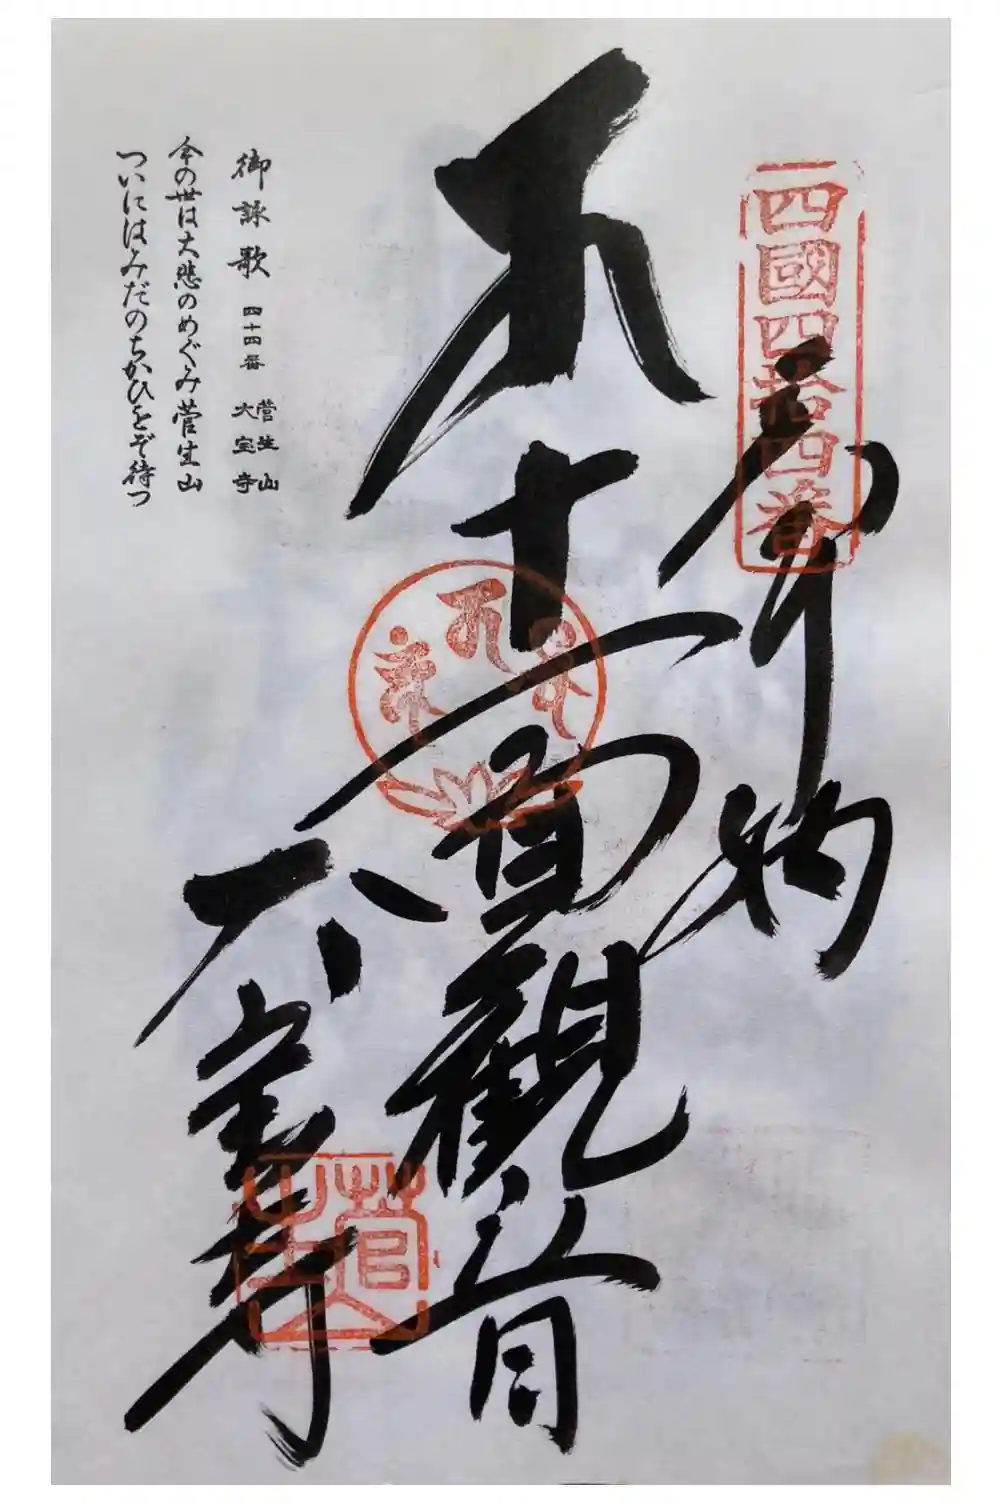 四國四拾四番
奉納
十一面観音
大宝寺
菅生山
御詠歌 四十四番 菅生山 大宝寺
今の世は大悲のめぐみ菅生山
ついにはみだのちかひをぞ待つ